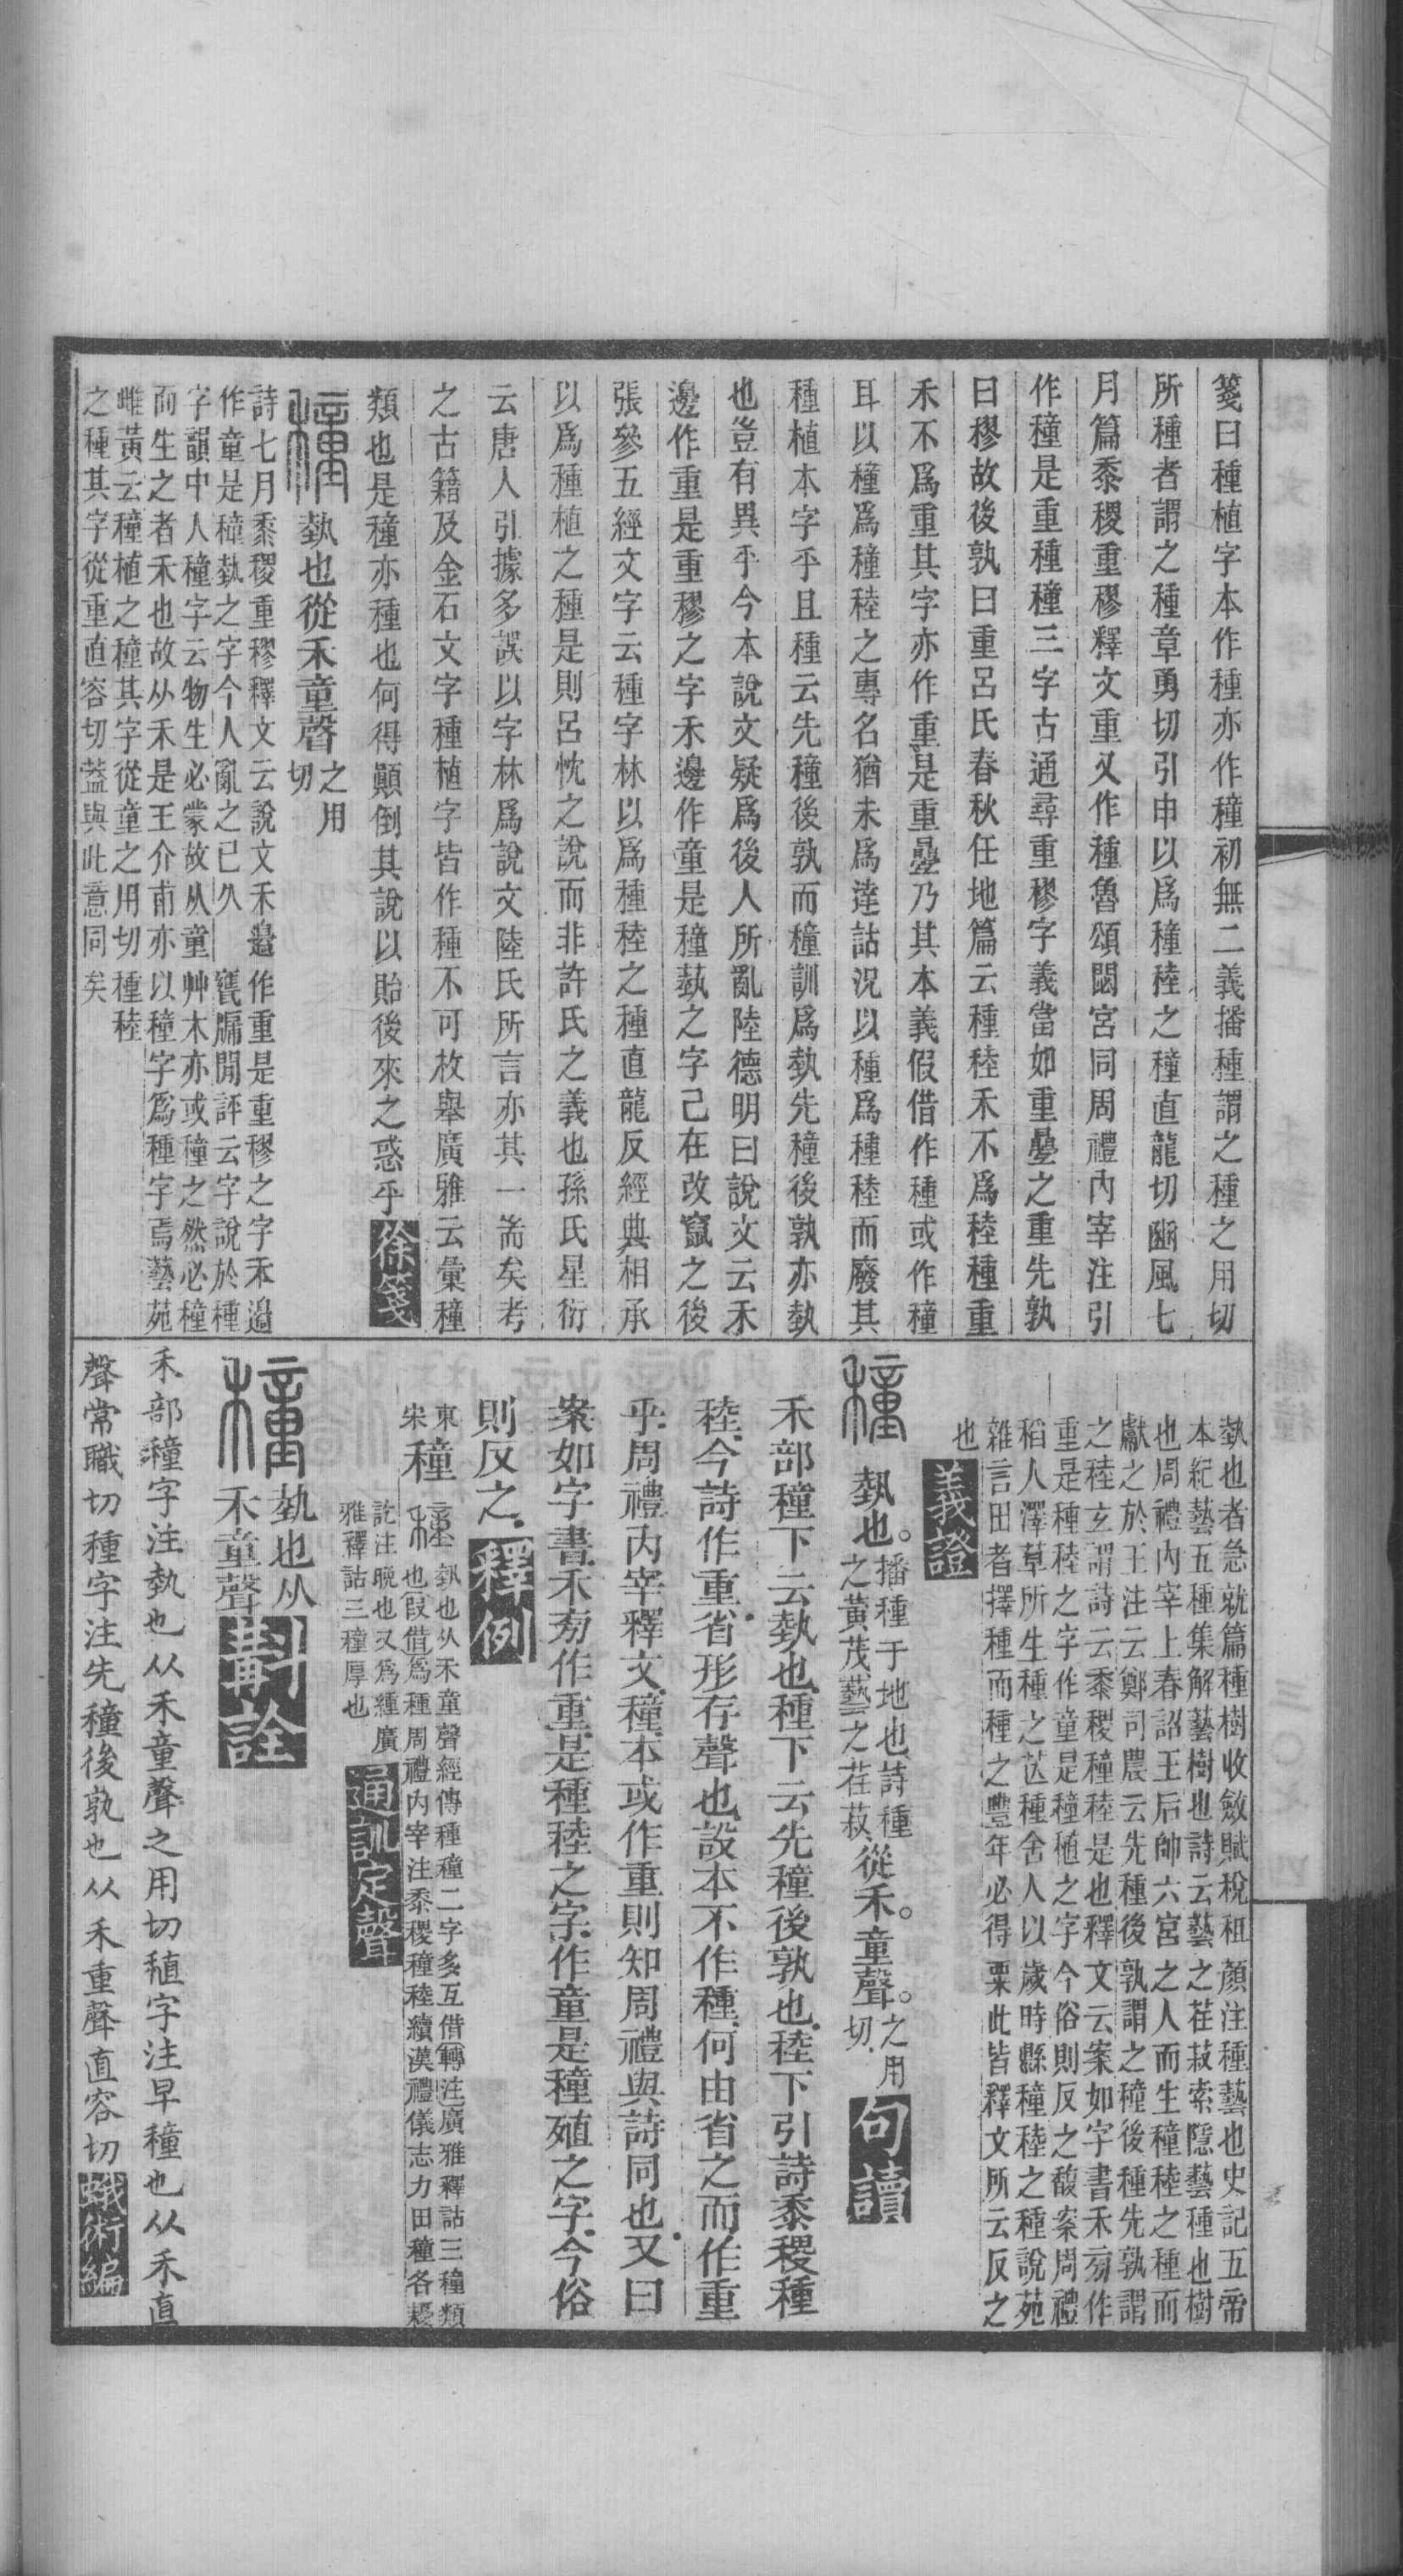 箋曰種植字本作種亦作穜初無二義播種謂之種之用切
所種者謂之種章勇切引申以爲穜稑之穜直龍切豳風七
月篇黍稷重穋釋文重又作種魯頌閟宮同周禮內宰注引
作穜是重種穜三字古通尋重穋字義當如重疊之重先孰
曰穋故後孰曰重呂氏春秋任地篇云種稑禾不爲稑種重
禾不爲重其字亦作重是重疊乃其本義假借作種或作穜
耳以穜爲穜稑之專名猶未爲達詁況以種爲種稑而廢其
種植本字乎且種云先穜後孰而穜訓爲埶先穜後孰亦埶
也豈有異乎今本說文疑爲後人所亂陸德明曰說文云禾
邊作重是重穋之字禾邊作童是穜蓺之字已在改竄之後
張參五經文字云種字林以爲種稑之種直龍反經典相承
以爲種植之種是則呂忱之說而非許氏之義也孫氏星衍
云唐人引據多誤以字林爲說文陸氏所言亦其一耑矣考
之古籍及金石文字種植字皆作種不可枚舉廣雅云彙穜
類也是穜亦種也何得顚倒其說以貽後來之惑乎徐箋
穜埶也從禾童聲之用切
詩七月黍稷重穋釋文云說文禾邊作重是重穋之字禾邊
作童是穜蓺之字今人亂之已久 甕牖閒評云字說於種
字韻中人穜字云物生必蒙故从童艸木亦或穜之然必穜
而生之者禾也故从禾是王介甫亦以穜字爲種字焉藝苑
雌黃云穜植之穜其字從童之用切種稑
之種其字從重直容切葢與此意同矣
埶也者急就篇種樹收斂賦稅租顏注種藝也史記五帝
本紀藝五種集解藝樹也詩云藝之荏菽索隱藝種也樹
也周禮內宰上春詔王后帥六宮之人而生穜稑之種而
獻之於王注云鄭司農云先種後孰謂之穜後種先孰謂
之稑玄謂詩云黍稷穜稑是也釋文云案如字書禾旁作
重是種稑之字作童是穜植之字今俗則反之馥案周禮
稻人澤草所生種之芒種舍人以歲時縣穜稑之種說苑
雜言田者擇種而種之豐年必得粟此皆釋文所云反之
也義證
穜埶也。播種于地也詩種之黃茂藝之荏菽從禾。童聲。之用切句讀
禾部穜下云埶也種下云先穜後孰也稑下引詩黍稷種
稑今詩作重省形存聲也設本不作種何由省之而作重
乎周禮內宰釋文穜本或作重則知周禮與詩同也又曰
案如字書禾旁作重是種稑之字作童是穜殖之字今俗
則反之釋例
東宋穜穜埶也从禾童聲經傳種穜二字多互借轉注廣雅釋詁三穜類
也叚借爲種周禮內宰注黍稷穜稑續漢禮儀志力田穜各耰
訖注晚也又爲緟廣
雅釋詁三穜厚也通訓定聲
穜埶也从禾童聲斠詮
禾部穜字注埶也从禾童聲之用切稙字注早穜也从禾直
聲常職切種字注先穜後孰也从禾重聲直容切蛾術編